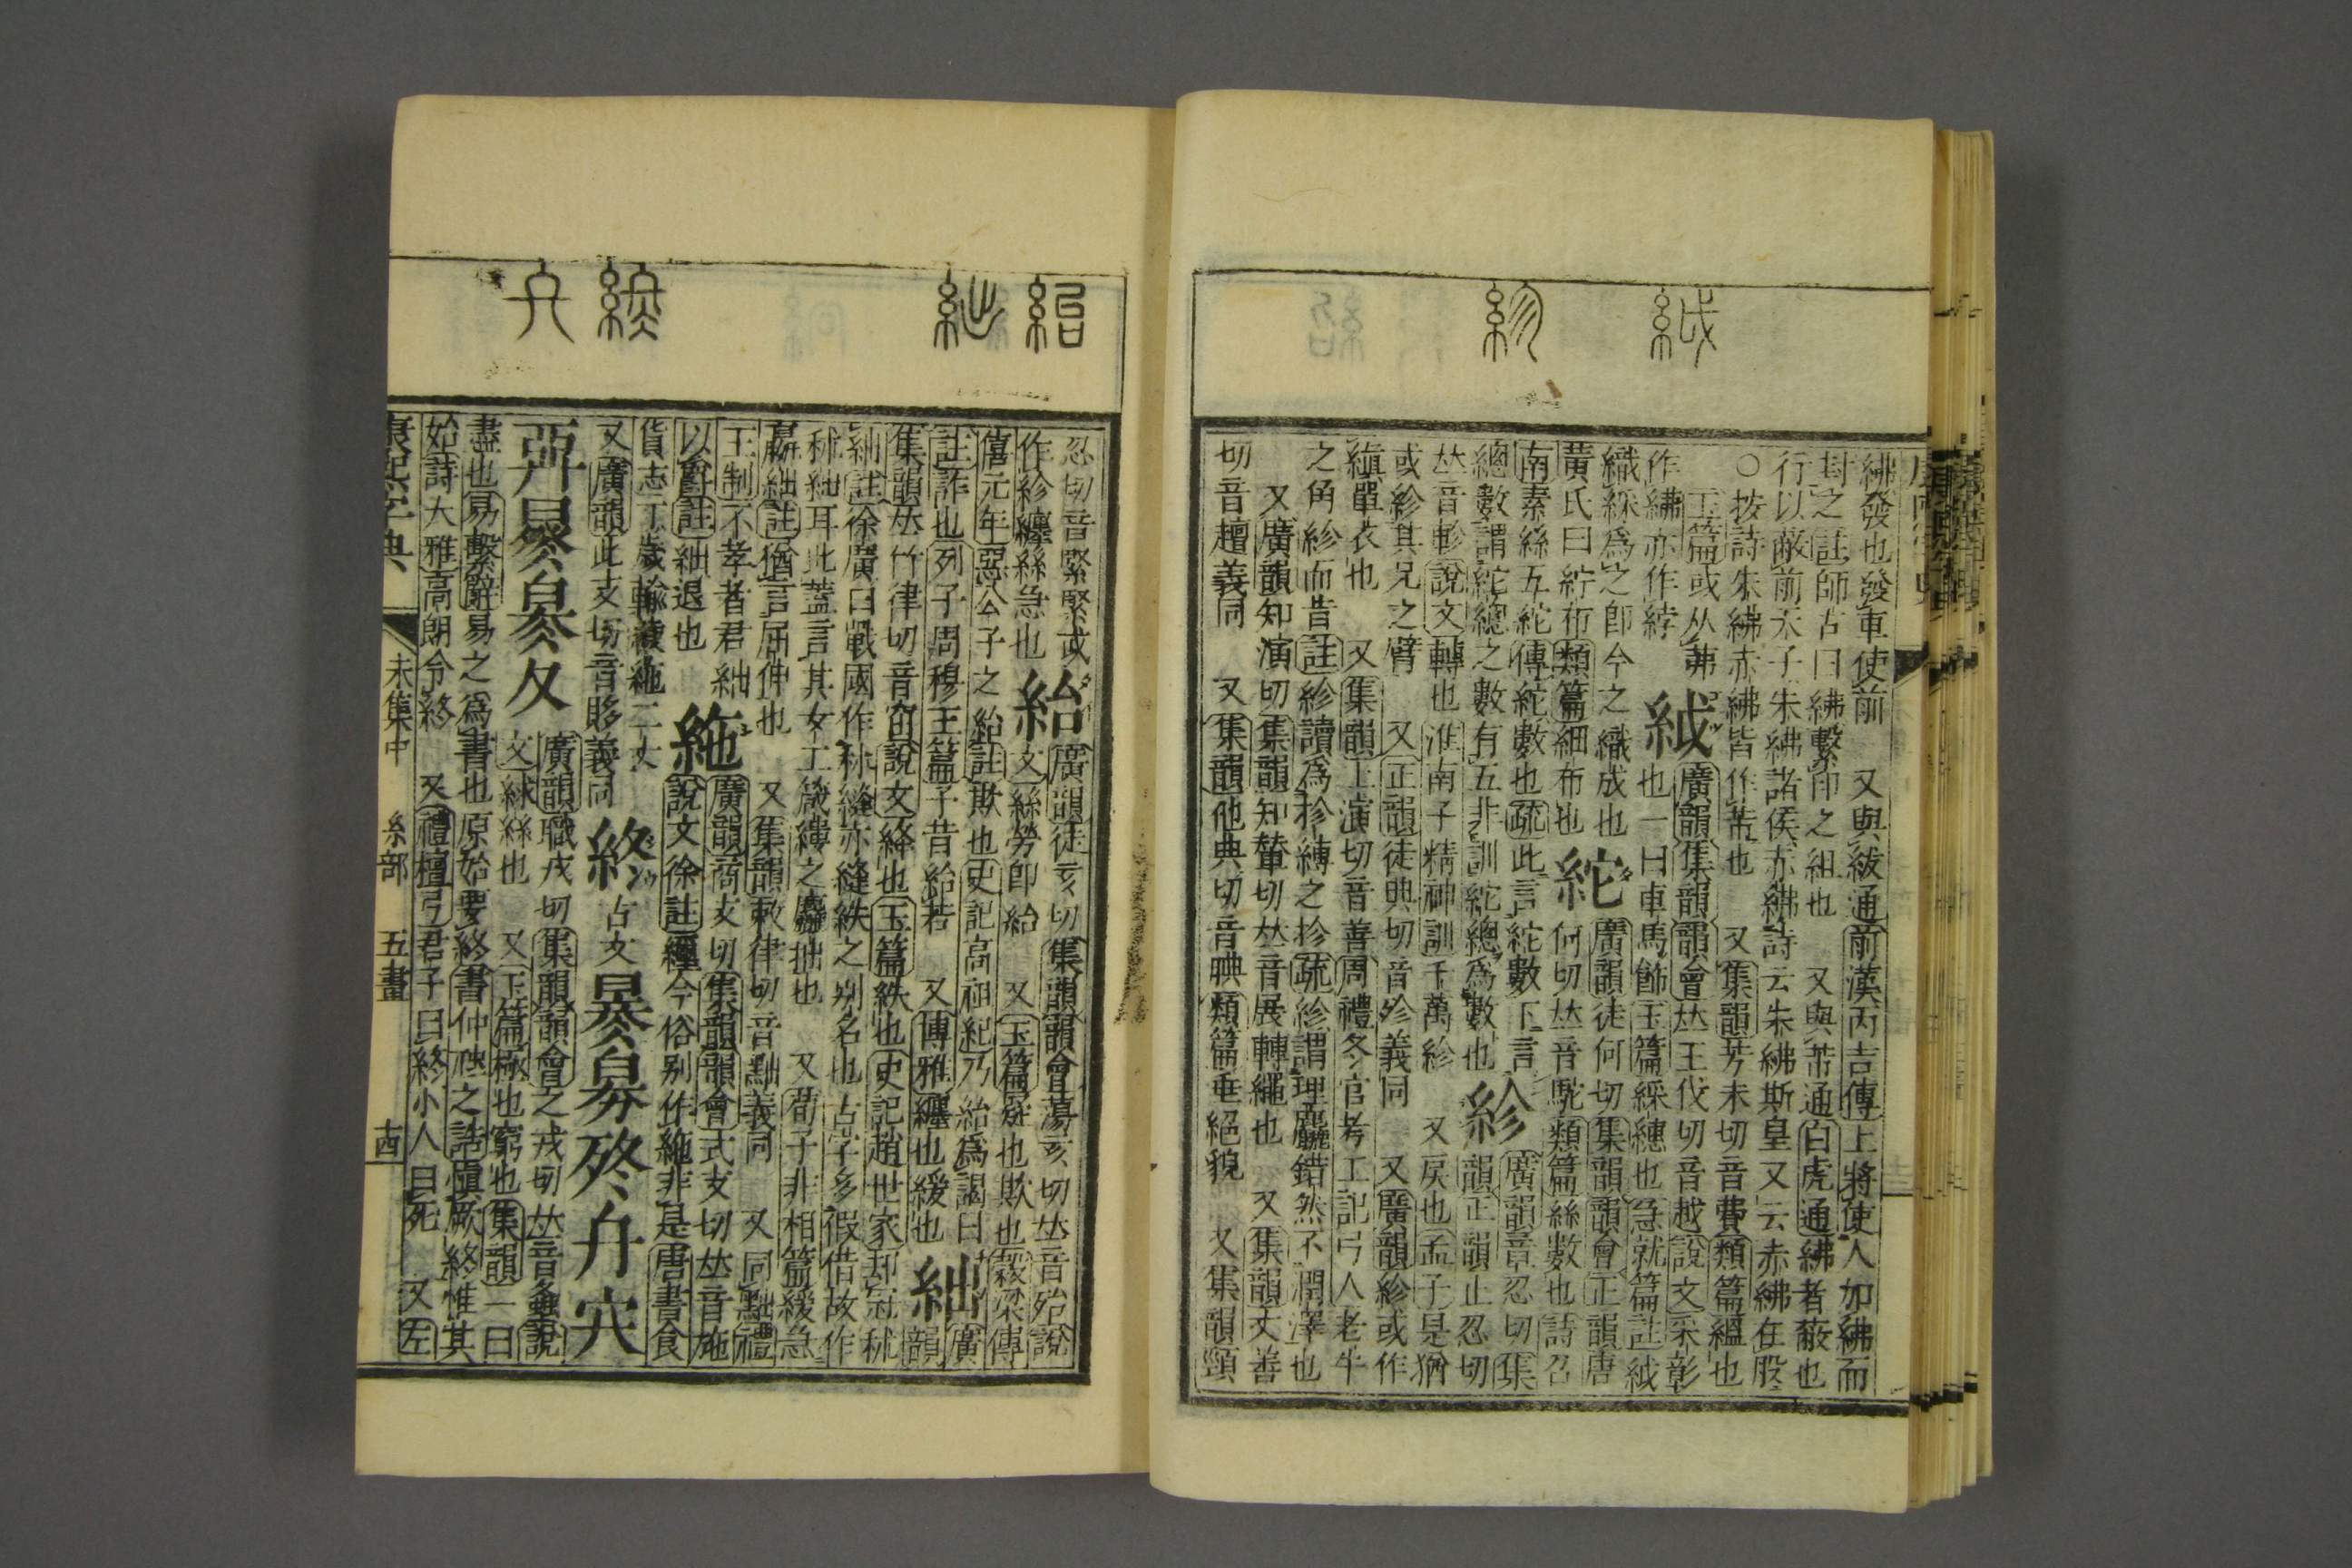 紱發也發車使前　又與紱通前漢丙吉傳上將使人加紼而
封之註師古曰紼繫印之組也　又與芾通白虎通紼者蔽也
行以蔽前天子朱紼諸侯赤紼詩云朱紼斯皇又云赤紼在股
○按詩朱紼赤紼皆作芾也　又集韻芳未切音費類篇緼也
玉篇或从弗
作紼亦作綍
絨廣韻集韻韻會𠀤王伐切音越說文采彰
也一曰車馬飾玉篇綵繐也急就篇註絨
織綵爲之卽今之織成也
黃氏曰紵布類篇細布也
紽廣韻徒何切集韻韻會正韻唐
何切𠀤音駝類篇絲數也詩召
南素絲五紽傳紽數也疏此言紽數下言
總數謂紽總之數有五非訓紽總爲數也
紾廣韻章忍切集
韻正韻止忍切
𠀤音軫說文轉也淮南子精神訓千萬紾　又戾也孟子是猶
或紾其兄之臂　又正韻徒典切音殄義同　又廣韻紾或作
縝單衣也　又集韻上演切音善周禮冬官考工記弓人老牛
之角紾而昔註紾讀爲抮縳之抮疏紾謂理麤錯然不潤澤也
又廣韻知演切集韻知輦切𠀤音展轉繩也　又集韻丈善
切音趙義同　又集韻他典切音腆類篇垂絕貌　又集韻頸
忍切音緊緊或
作紾纏絲急也
紿廣韻徒亥切集韻韻會蕩亥切𠀤音殆說
文絲勞卽紿　又玉篇疑也欺也穀梁傳
僖元年惡公子之紿註欺也史記高祖紀乃紿爲謁曰
註詐也列子周穆王篇子昔紿若　又博雅纏也緩也
絀廣
韻
集韻𠀤竹律切音窋說文絳也玉篇紩也史記趙世家卻冠秫
絀註徐廣曰戰國作秫縫亦縫紩之別名也古字多假借故作
秫絀耳此蓋言其女工箴縷之麤拙也　又荀子非相篇緩急
嬴絀註猶言屈伸也　又集韻敕律切音黜義同　又同黜禮
王制不孝者君絀
以爵註絀退也
絁廣韻商支切集韻韻會式支切𠀤音施
說文徐註纚今俗別作絁非是唐書食
貨志丁歲輸綾絁二丈
又廣韻此支切音眵義同
終古文
廣韻職戎切集韻韻會之戎切𠀤音螽說
文絿絲也　又玉篇極也窮也集韻一曰
盡也易繫辭易之爲書也原始要終書仲虺之誥愼厥終惟其
始詩大雅高朗令終　又禮檀弓君子曰終小人曰死　又左
康熙字典　未集中　糸部　五畫